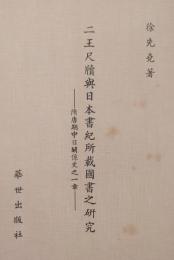 徐先堯著
二王尺牘與日本書紀所載國書之研究
——隋唐期中日關係史之一章——
華世出版社